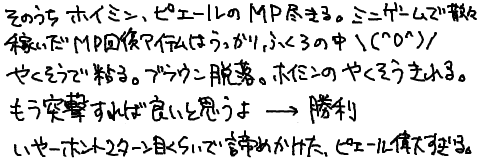 そのうち ホイミン、ピエールの MP尽きる。ミニゲームで散々
稼いだ MP回復アイテムはうっかりふくろの中 \(^o^)/
やくそうで粘る。ブラウン脱落。ホイミンのやくそうきれる。
もう突撃すれば良いと思うよ → 勝利
いやーホント2ターン目くらいで諦めかけた、ピエール偉大すぎる。